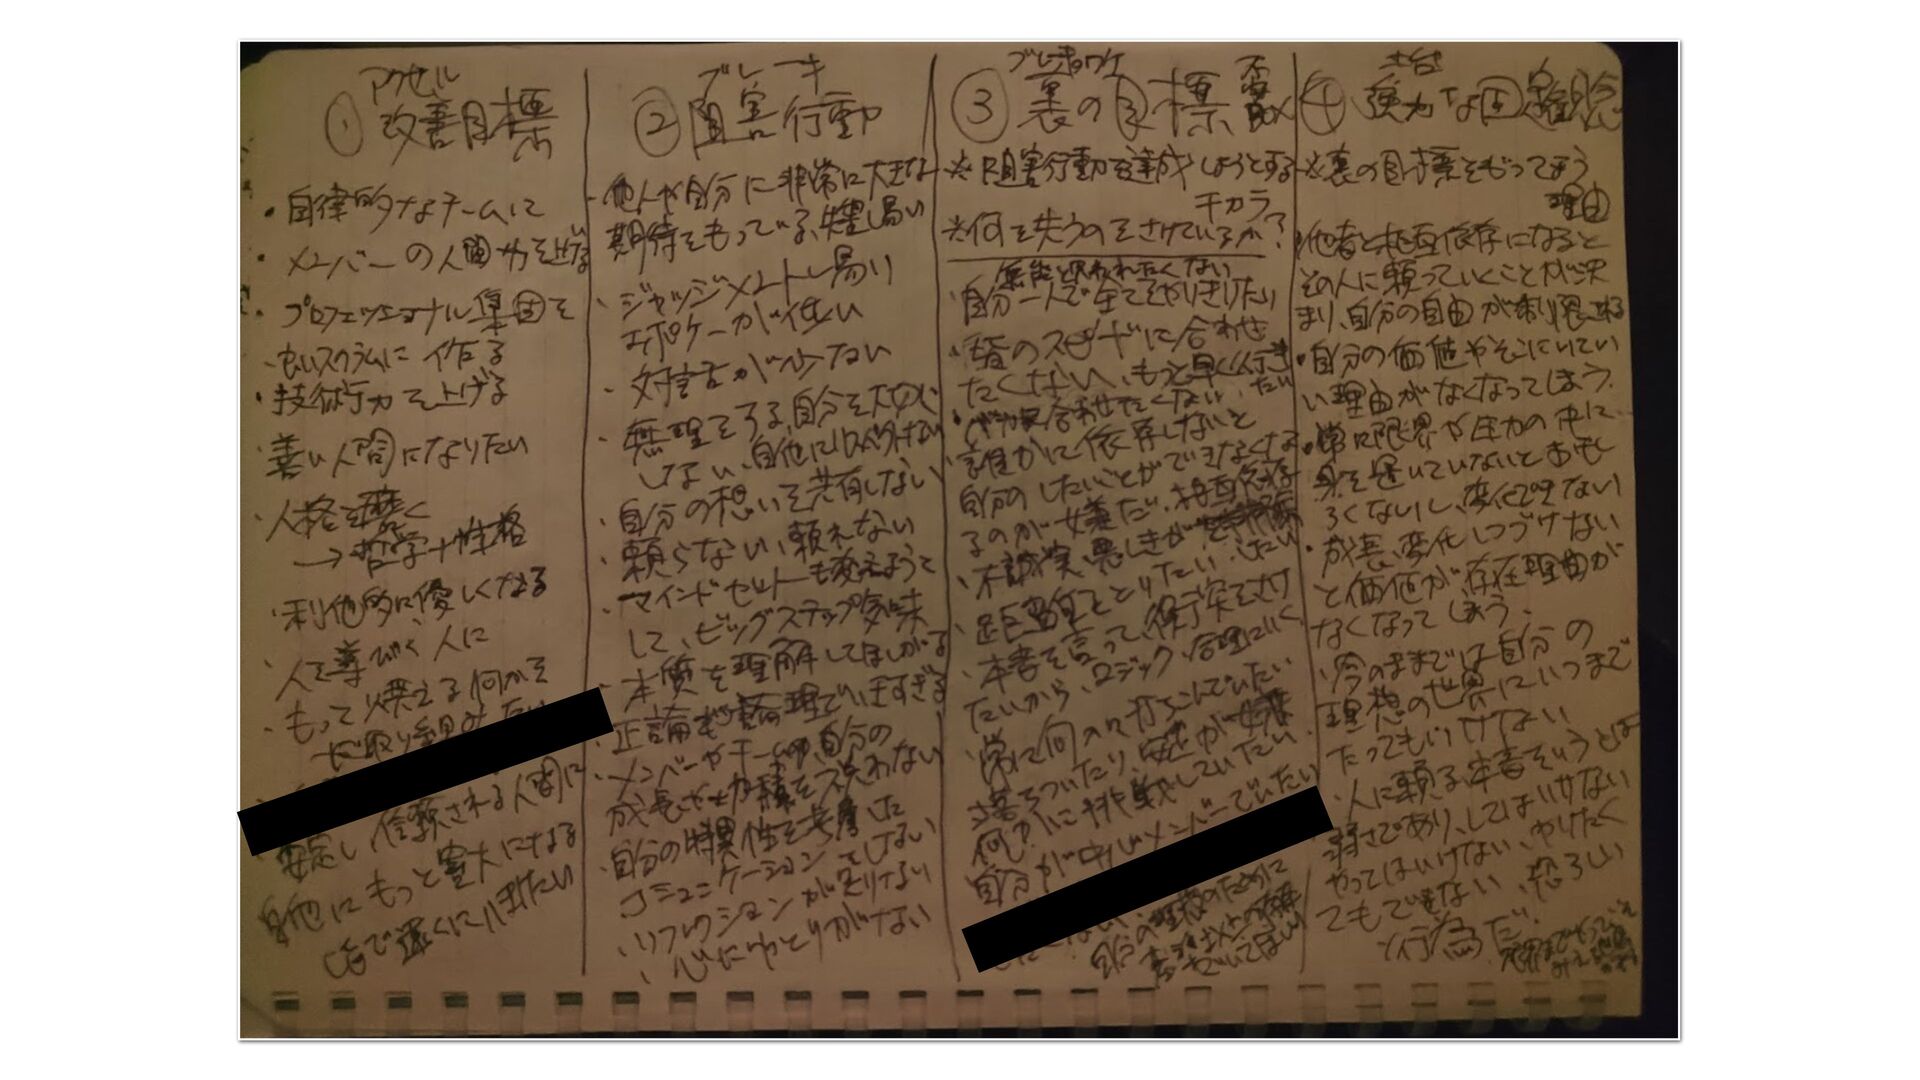 アクセル
① 改善目標
・自律的なチームに
・メンバーの人間力を上げる
・プロフェッショナル集団を
スクラムに作る
・技術力を上げる
・善い人間になりたい
・人格を磨く
→哲学+性格
・利他的に優しくなる
・人を導びく人に
・もって燃える何かを
取り組みたい
安定し、信頼される人間に
自他にもっと寛大になる
遠くに
ブレーキ
② 阻害行動
・他人や自分に非常に大きな
期待をもっている、失望し易い
・ジャッジメントし易い
エポケーが低い
・対話が少ない
・無理をする、自分を大切に
しない、自他に
・自分の想いを共有しない
・頼らない、頼れない
・マインドセットも変えようと
して、ビッグステップ気味
・本質を理解してほしがる
・正論 論理でいきすぎる
・メンバーやチームの、自分の
成長や
自分の特異性を考慮した
コミュニケーションをしない
・リフレクションが足りない
・心にゆとりがない
ブレーキのワケ
③ 裏の目標
※阻害行動を達成しようとする
チカラ
※何を失うのをさけているか?
無能と思われたくない
・自分一人で全てをやりきりたい
・皆のスピードに合わせ
たくない、もっと早く行き
たい
合わせたくない
・誰かに依存しないと
自分のしたいことができなくなる
のが嫌だ、相互依存
・不誠実、悪しきが
距離をとりたい、したい
・本音を言って、
たいから、ロジック、合理にいく
・常に何かに打ちこんでいたい
落ちついたり、安定が嫌
何かに挑戦していたい
自分が メンバーでいたい
自分の のために
いてほしい
土台
④ 強力な固定観念
※裏の目標をもってしまう
理由
・他者と相互依存になると
その人に頼っていくことが決
まり、自分の自由が制限される
・自分の価値やそこにいてい
い理由がなくなってしまう
・常に限界や圧力の中に
身を置いていないとおもし
ろくないし、変化できない
・成長、変化しつづけない
と価値が、存在理由が
なくなってしまう、
・今のままでは自分の
理想の世界にいつまで
たってもいけない
・人に頼る、本音をいうとは
弱さであり、してはいけない
やってはいけない、やりたく
てもできない、恐ろしい
行為だ。